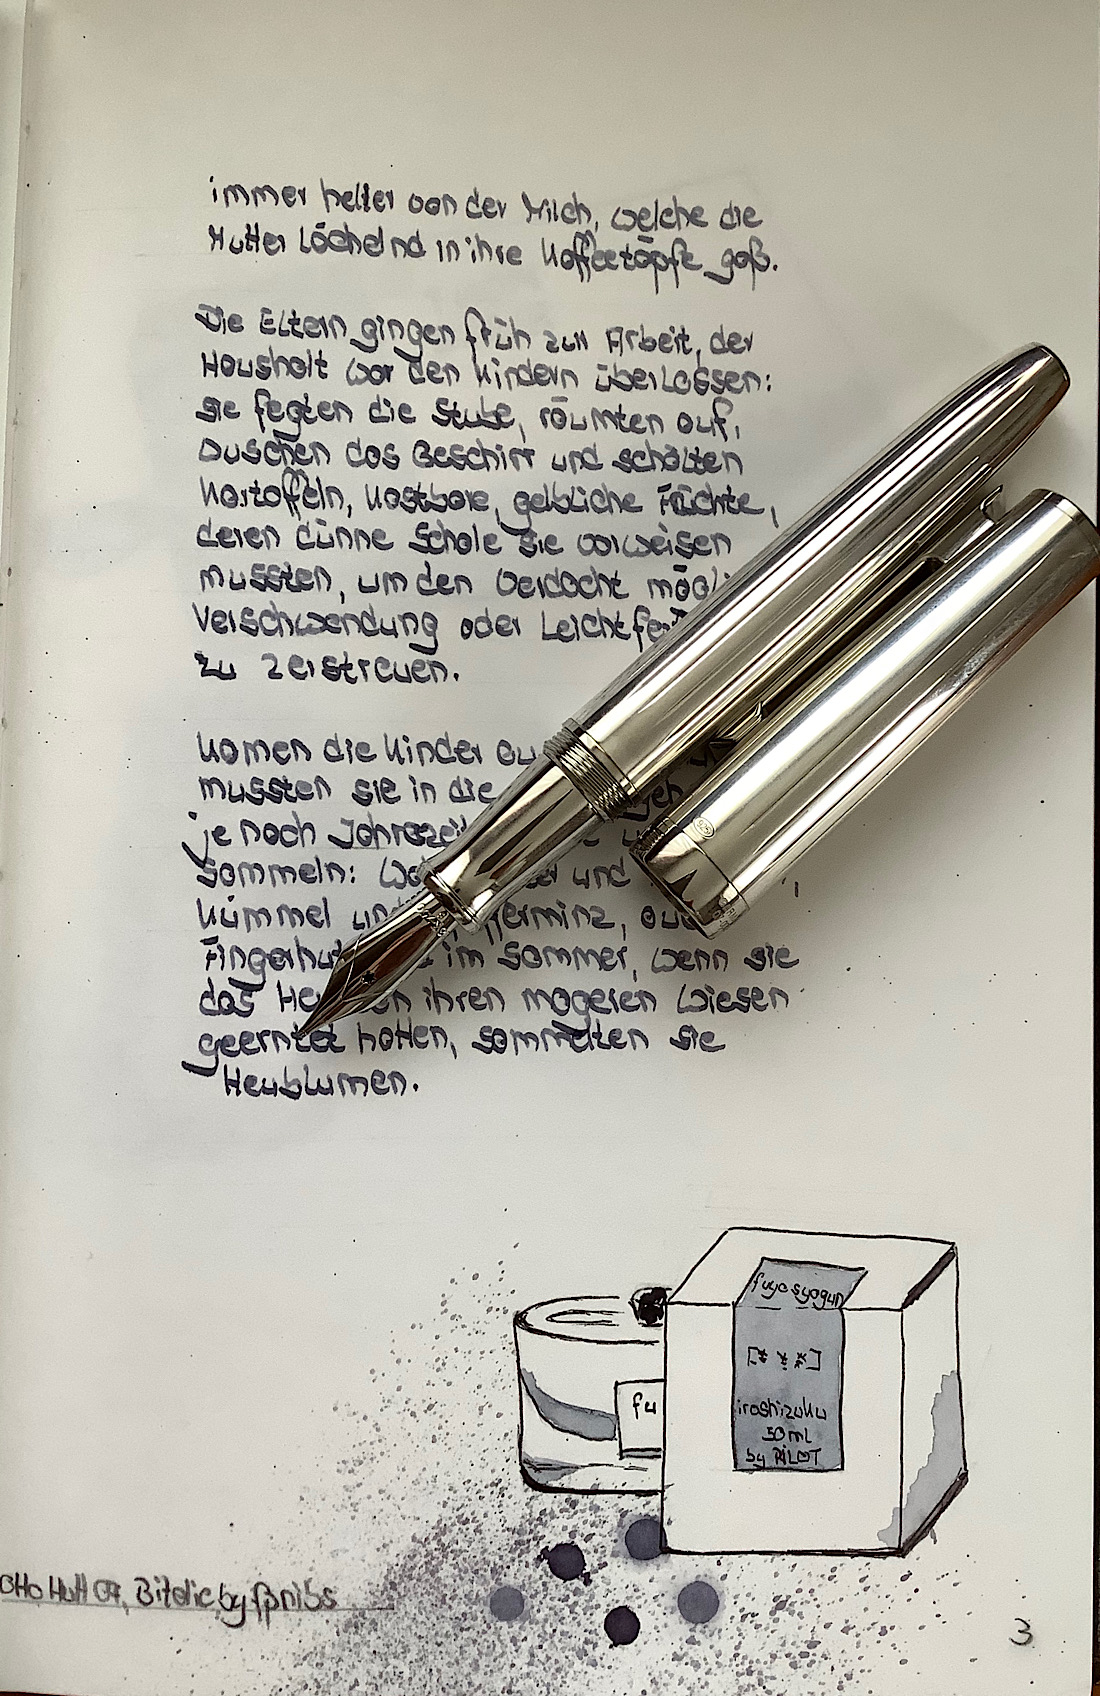 immer heller von der Milch, welche die
Mutter lächelnd in ihre Kaffeetöpfe goß.
Die Eltern gingen früh zur Arbeit, der
Haushalt war den Kindern überlassen:
sie fegten die Stube, räumten auf,
wuschen das Geschirr und schälten
Kartoffeln, kostbare, gelbliche Früchte,
deren dünne Schale sie vorweisen
mussten, um den Verdacht mögli
Verschwendung oder Leichtfer
zu zerstreuen.
Kamen die Kinder au
mussten sie in die
je nach Jahreszeit
sammeln: und
Kümmel und
Fingerhut im Sommer, wenn sie
das Heu ihren mageren Wiesen
geerntet hatten, sammelten sie
Heublumen.
fuyo syogun
[* * *]
fu
iroshizuku
50 ml
by PILOT
Otto Hutt 07, Bitalic by fpnibs
3
925